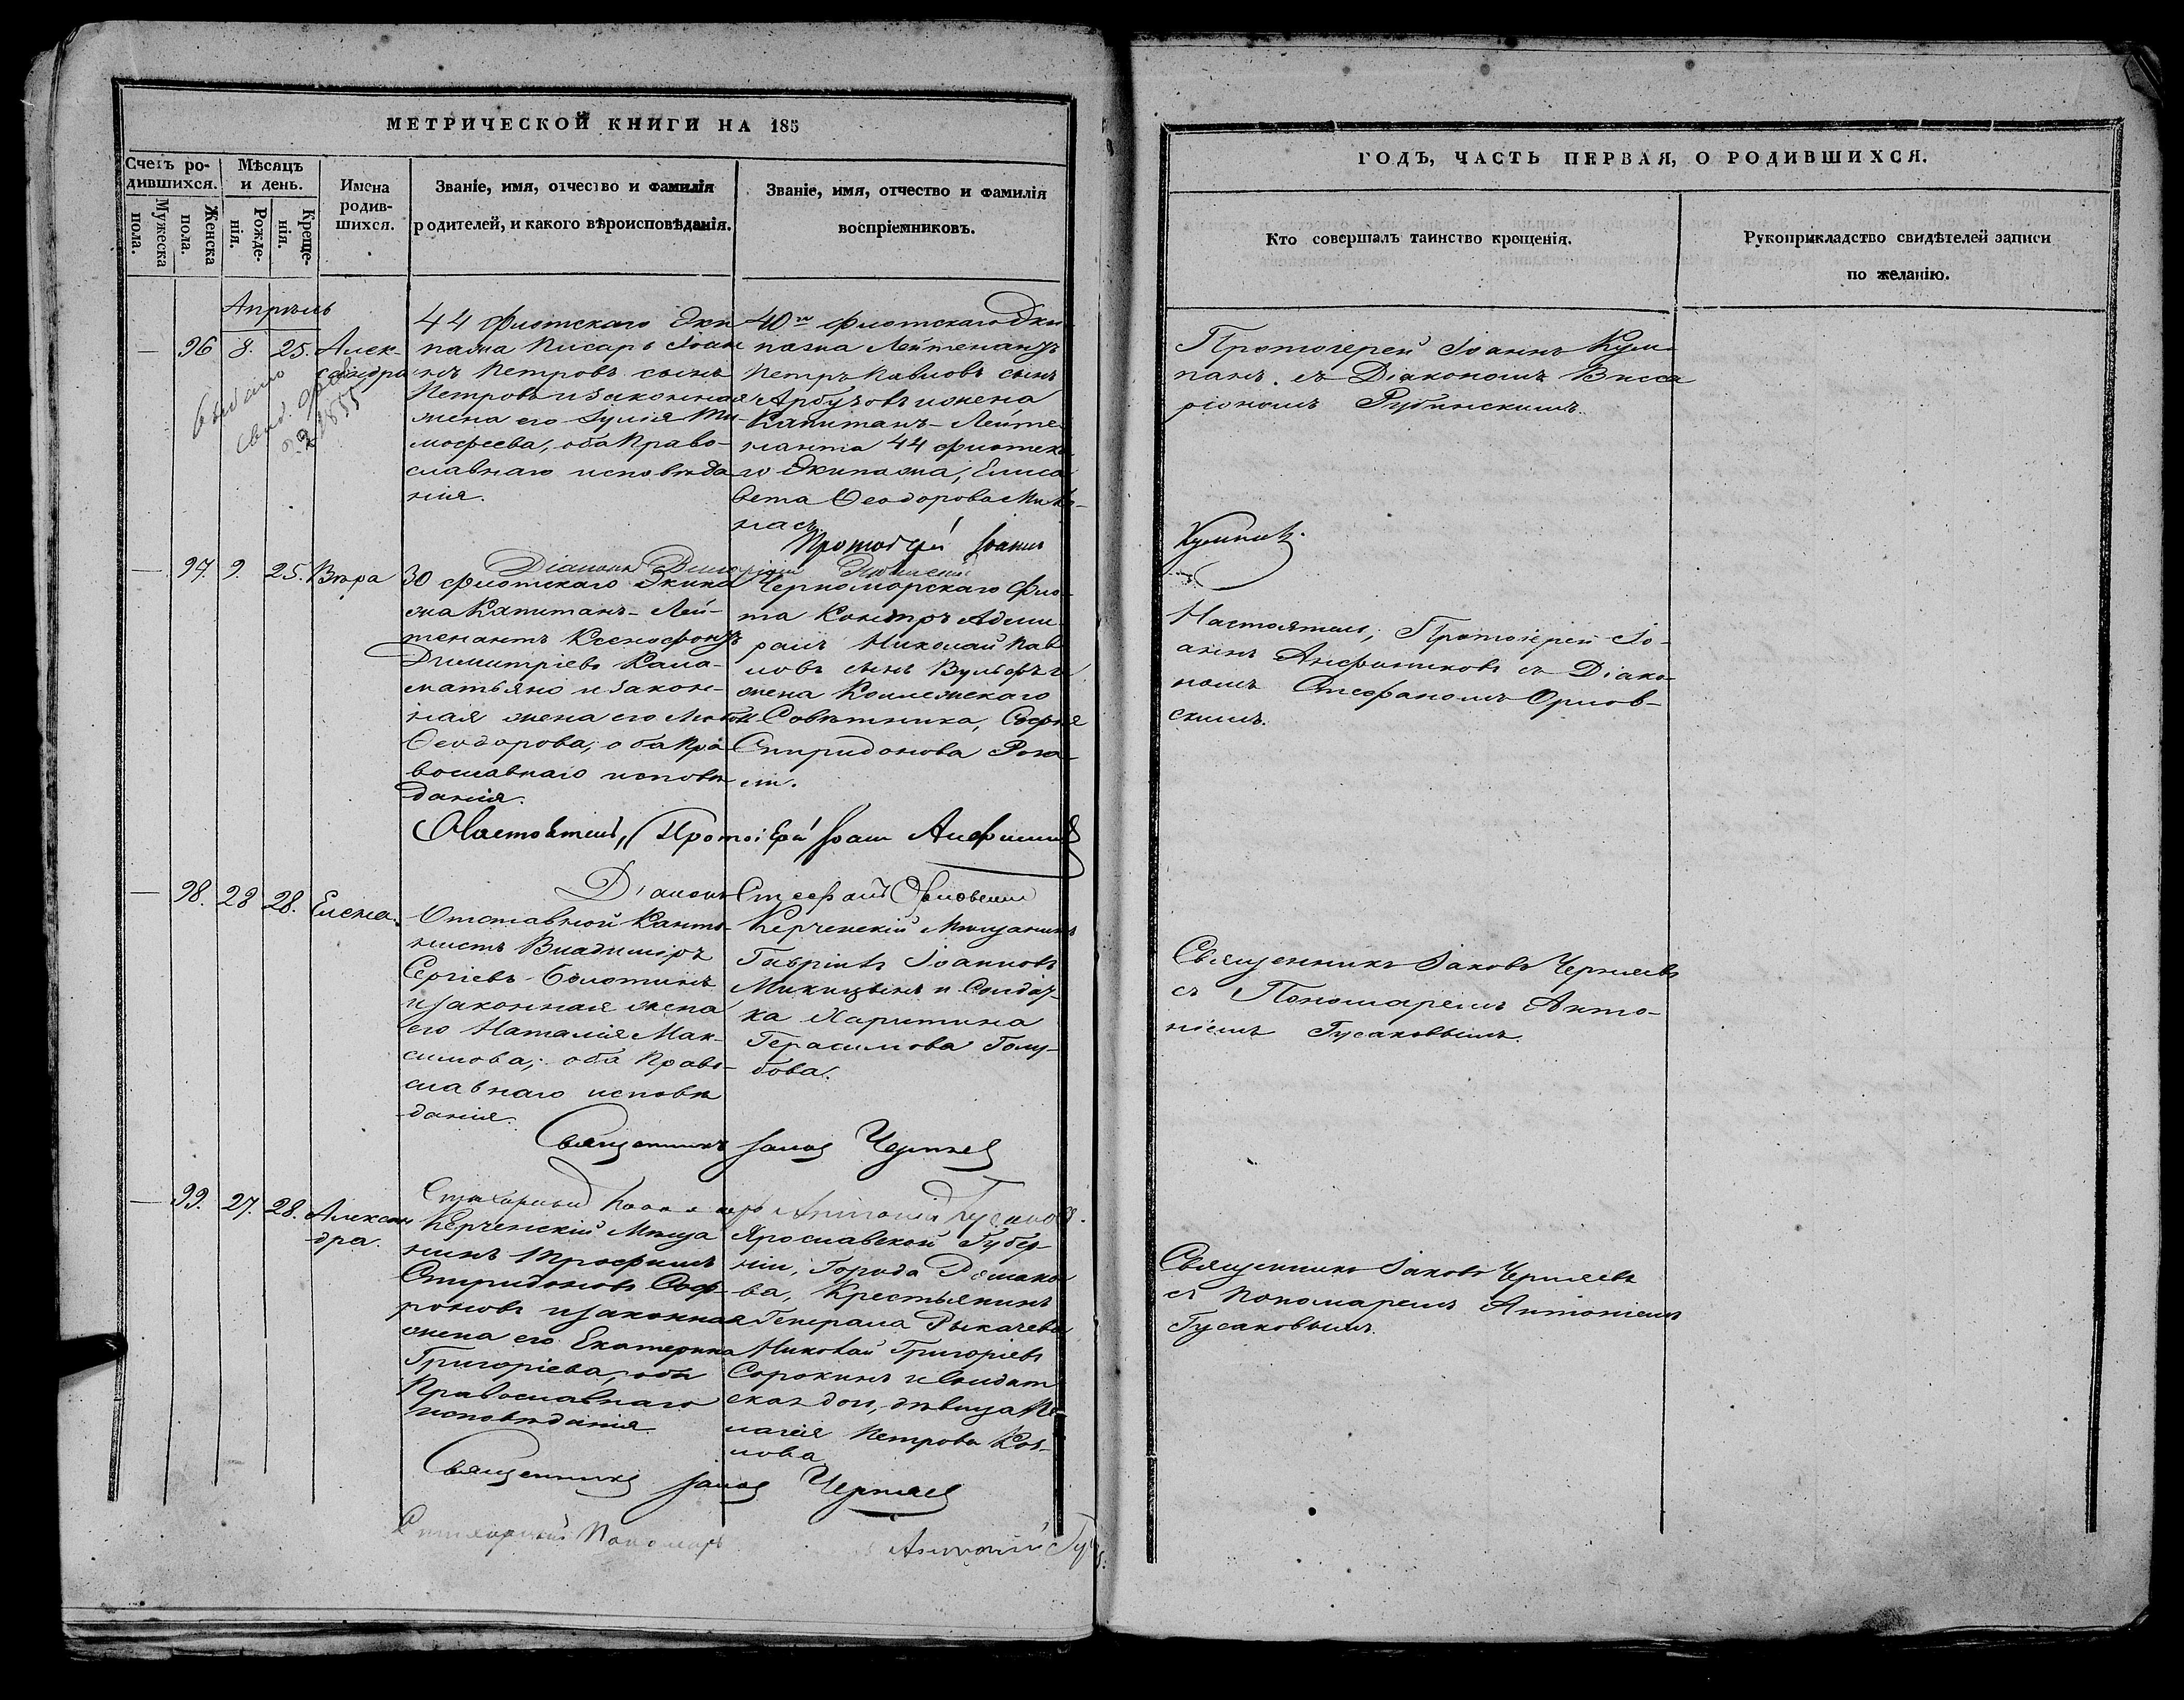 МЕТРИЧЕСКОЙ КНИГИ НА 185
Счетъ родившихся.
Мужеска пола.
Женска пола.
Мѣсяцъ и день.
Рожденія.
Крещенія.
Имена родив-
шихся.
Званіе, имя, отчество и фамилія
родителей, и какого вѣроисповѣданія.
Званіе, имя, отчество и фамилія
воспріемниковъ.
Апрѣль
— 96 8. 25. Алек-
сандра
44 Флотскаго Эки
пажа Писарь Іоан
нъ Петровъ сынъ
Петровъ и законная
жена его Іулія Ти-
мофеева, оба Право-
славнаго исповѣда
нія.
40го Флотскаго Эки
пажа Лейтенантъ
Петръ Павловъ сынъ
Арбузовъ и жена
Капитанъ-Лейте-
нанта 44 Флотска
го Экипажа, Елиса
вета Ѳеодорова
Протоіерей Іоаннъ
Діаконъ
— 97. 9. 25. Вѣра
30 Флотскаго Экипа
жа Капитанъ-Лей-
тенантъ Ксенофонтъ
Димитріевъ Кала-
матьяно и закон-
ная жена его Любовь
Ѳеодорова, оба Пра
вославнаго исповѣ
данія.
Черноморскаго Фло-
та Контръ Адми
ралъ Николай Пав
ловъ сынъ Вульфъ и
жена Коллежскаго
Совѣтника, Софія
Спиридонова
Настоятель, Протоіерей Іоаннъ
Діаконъ Стефанъ Орловскій
— 98. 28 28. Елена.
Отставной Канто-
нистъ Владиміръ
Сергіевъ Болотинъ
и законная жена
его Наталія Мак-
симова, оба Право-
славнаго исповѣ
данія.
Керченскій Мѣщанинъ
Гавріилъ Іоанновъ
Микицынъ и Солдат-
ка Харитина
Герасимова Голу-
бова.
Священникъ Іаковъ Черняевъ
Стихарный Пономарь Антоній Гусаковъ.
— 99. 27. 28. Алексан
дра.
Керченскій Мѣща
нинъ Трофимъ
Спиридоновъ Соф-
роновъ и законная
жена его Екатерина
Григоріева, оба
Православнаго
исповѣданія.
Ярославской Губер-
ніи, Города Романо
ва, Крестьянинъ
Генерала Рыкачева
Николай Григоріевъ
Сорокинъ и Солдат
ская дочь, дѣвица Пе
лагія Петрова Коз-
лова
Священникъ Іаковъ Черняевъ
Стихарный Пономарь Антоній
ГОДЪ, ЧАСТЬ ПЕРВАЯ, О РОДИВШИХСЯ.
Кто совершалъ таинство крещенія.
Рукоприкладство свидѣтелей записи
по желанію.
Протоіерей Іоаннъ Кум-
панъ. съ Діакономъ Висса
ріономъ Рубинскимъ.
Настоятель, Протоіерей Іо-
аннъ Анфиников съ Діако-
номъ Стефаномъ Орлов-
скимъ.
Священникъ Іаковъ Черняевъ
съ Пономаремъ Анто-
ніемъ Гусаковымъ.
Священникъ Іаковъ Черняевъ
съ Пономаремъ Антоніемъ
Гусаковымъ.